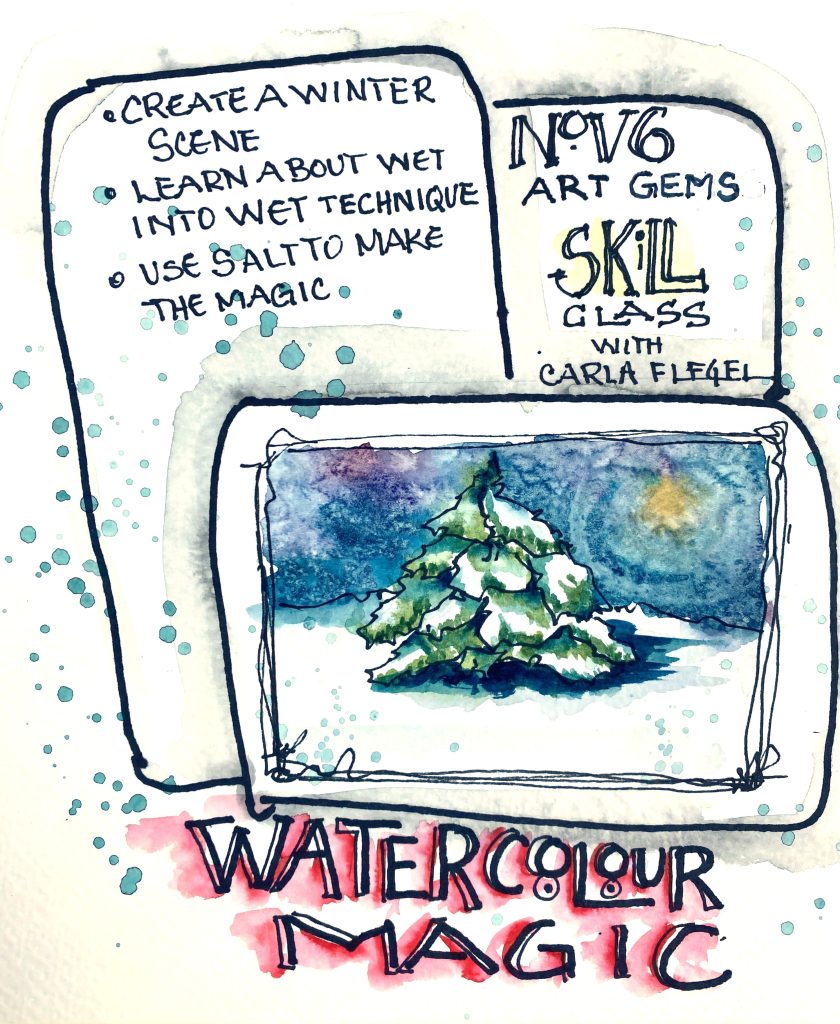 • CREATE A WINTER
SCENE
• LEARN ABOUT WET
INTO WET TECHNIQUE
• USE SALT TO MAKE
THE MAGIC
NOV 6
ART GEMS
SKiLL
CLASS
WITH
CARLA FLEGEL
WATERCOLOUR
MAGIC